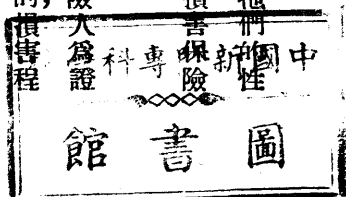 他們的性
損害保險
險人爲證
的，損害程
中國新專科
圖書館